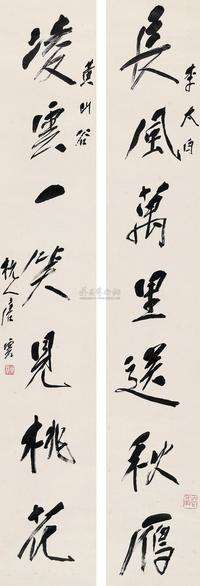 長風萬里送秋雁
李太白
凌雲一笑見桃花
黄山谷
杭人唐雲